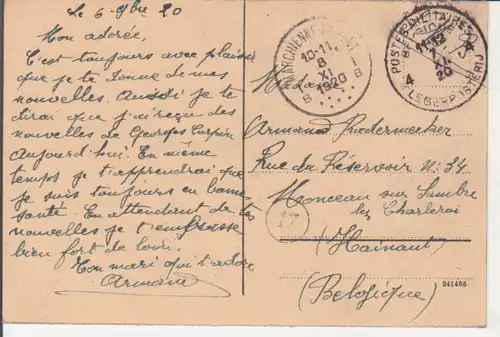 Le 6 9bre 20
Mon adorée,
C'est toujours avec plaisir
que je te donne de mes
nouvelles. Aussi je te
dirai que j'ai reçue des
nouvelles de Georges
aujourd'hui. En même
temps je t'apprendrai que
je suis toujours en bonne
santé. En attendant de tes
nouvelles je t'embrasse
bien fort de loin.
Ton mari qui t'adore
Armand
MARCHIENNE-AU-PONT
10-11
8
XI
1920
B B
POSTES MILITAIRES
BELGIQUE
N° 12
XI
20
4
LEGERPOSTERIJ
Madame
Armand
Rue du Réservoir N: 34
Monceau sur Sambre
lez Charleroi
17
(Hainaut)
(Belgique)
241466